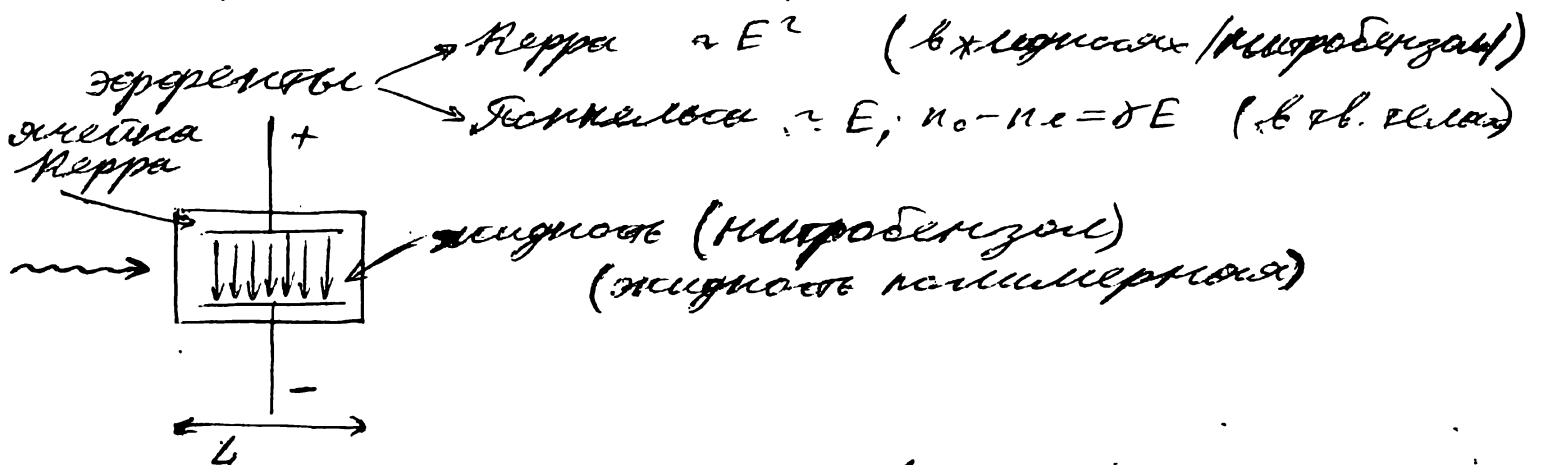 Керра ~ E² (в жидкостях /нитробензол/)
эффекты
Поккельса ~ E; n₀-nе=γE (в тв. телах)
ячейка
Керра
+
жидкость (нитробензол)
(жидкость полимерная)
−
L